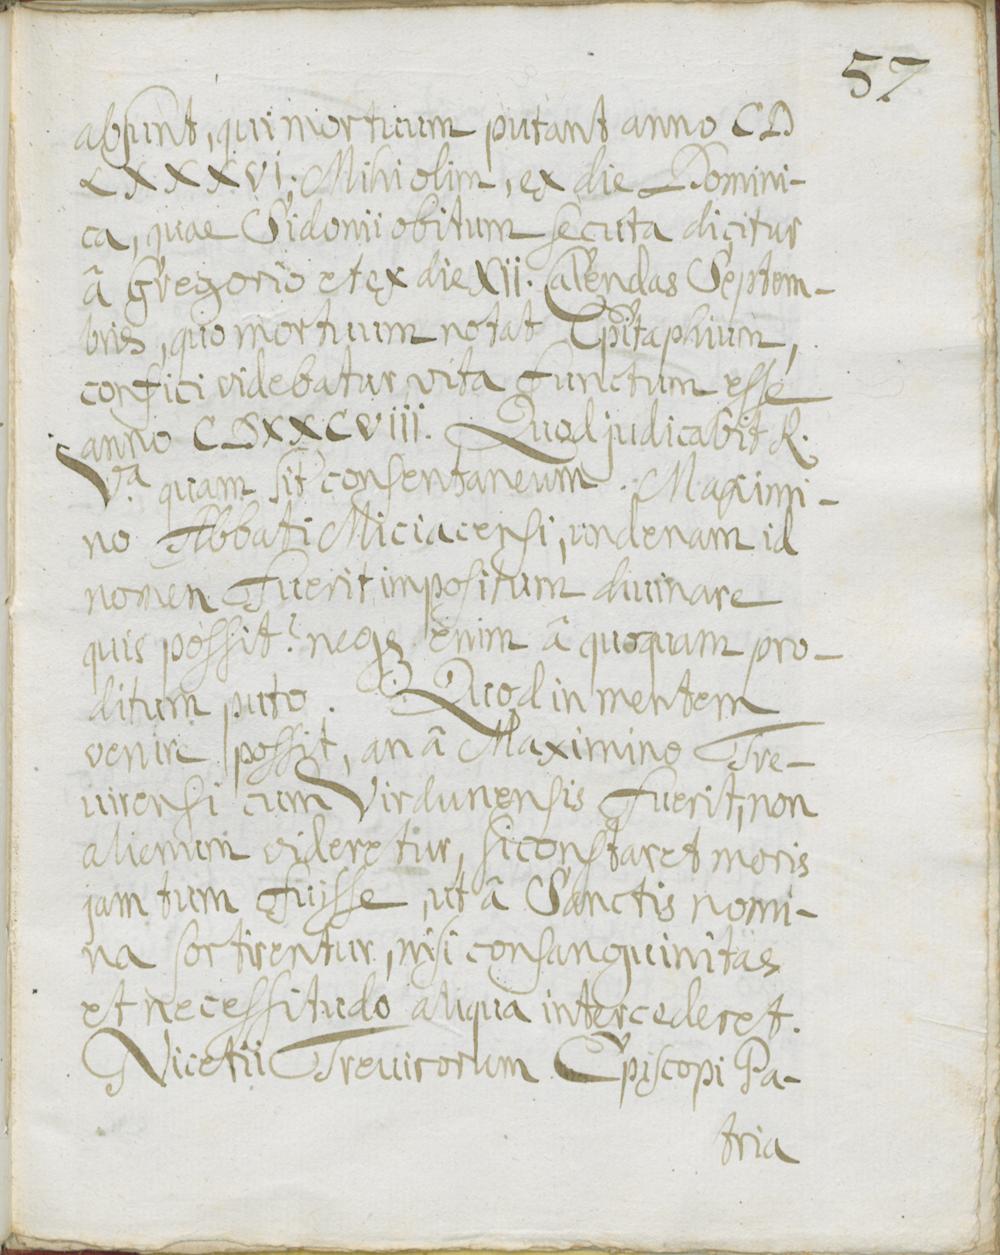 57
absunt, qui mortuum putant anno CD
LXXXVI. Mihi olim, ex die Domini-
ca, quae Sidonii obitum secuta dicitur
â Gregorio et ex die XII. Calendas Septem-
bris, quo mortuum notat Epitaphium,
confici videbatur, vita functum esse
anno CDXXCVIII. Quod judicabit R.
Vᵃ quam sit consentaneum. Maximi-
no Abbati Miciacensi, undenam id
nomen fuerit impositum divinare
quis possit? neqs enim â quoquam pro-
ditum puto. Quod in mentem
venire possit, an â Maximino Tre-
uirensi cum Virdunensis fuerit, non
alienum videretur, si constaret moris
jam tum fuisse, ut â Sanctis nomi-
na sortirentur, nisi consanguinitas
et necessitudo aliqua intercederet.
Nicetii Treuirorum Episcopi Pa-
tria